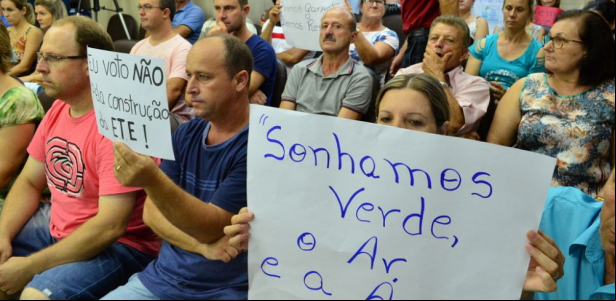 Eu voto NÃO
da construção
da ETE!
"Sonhamos
Verde,
o Ar
e a